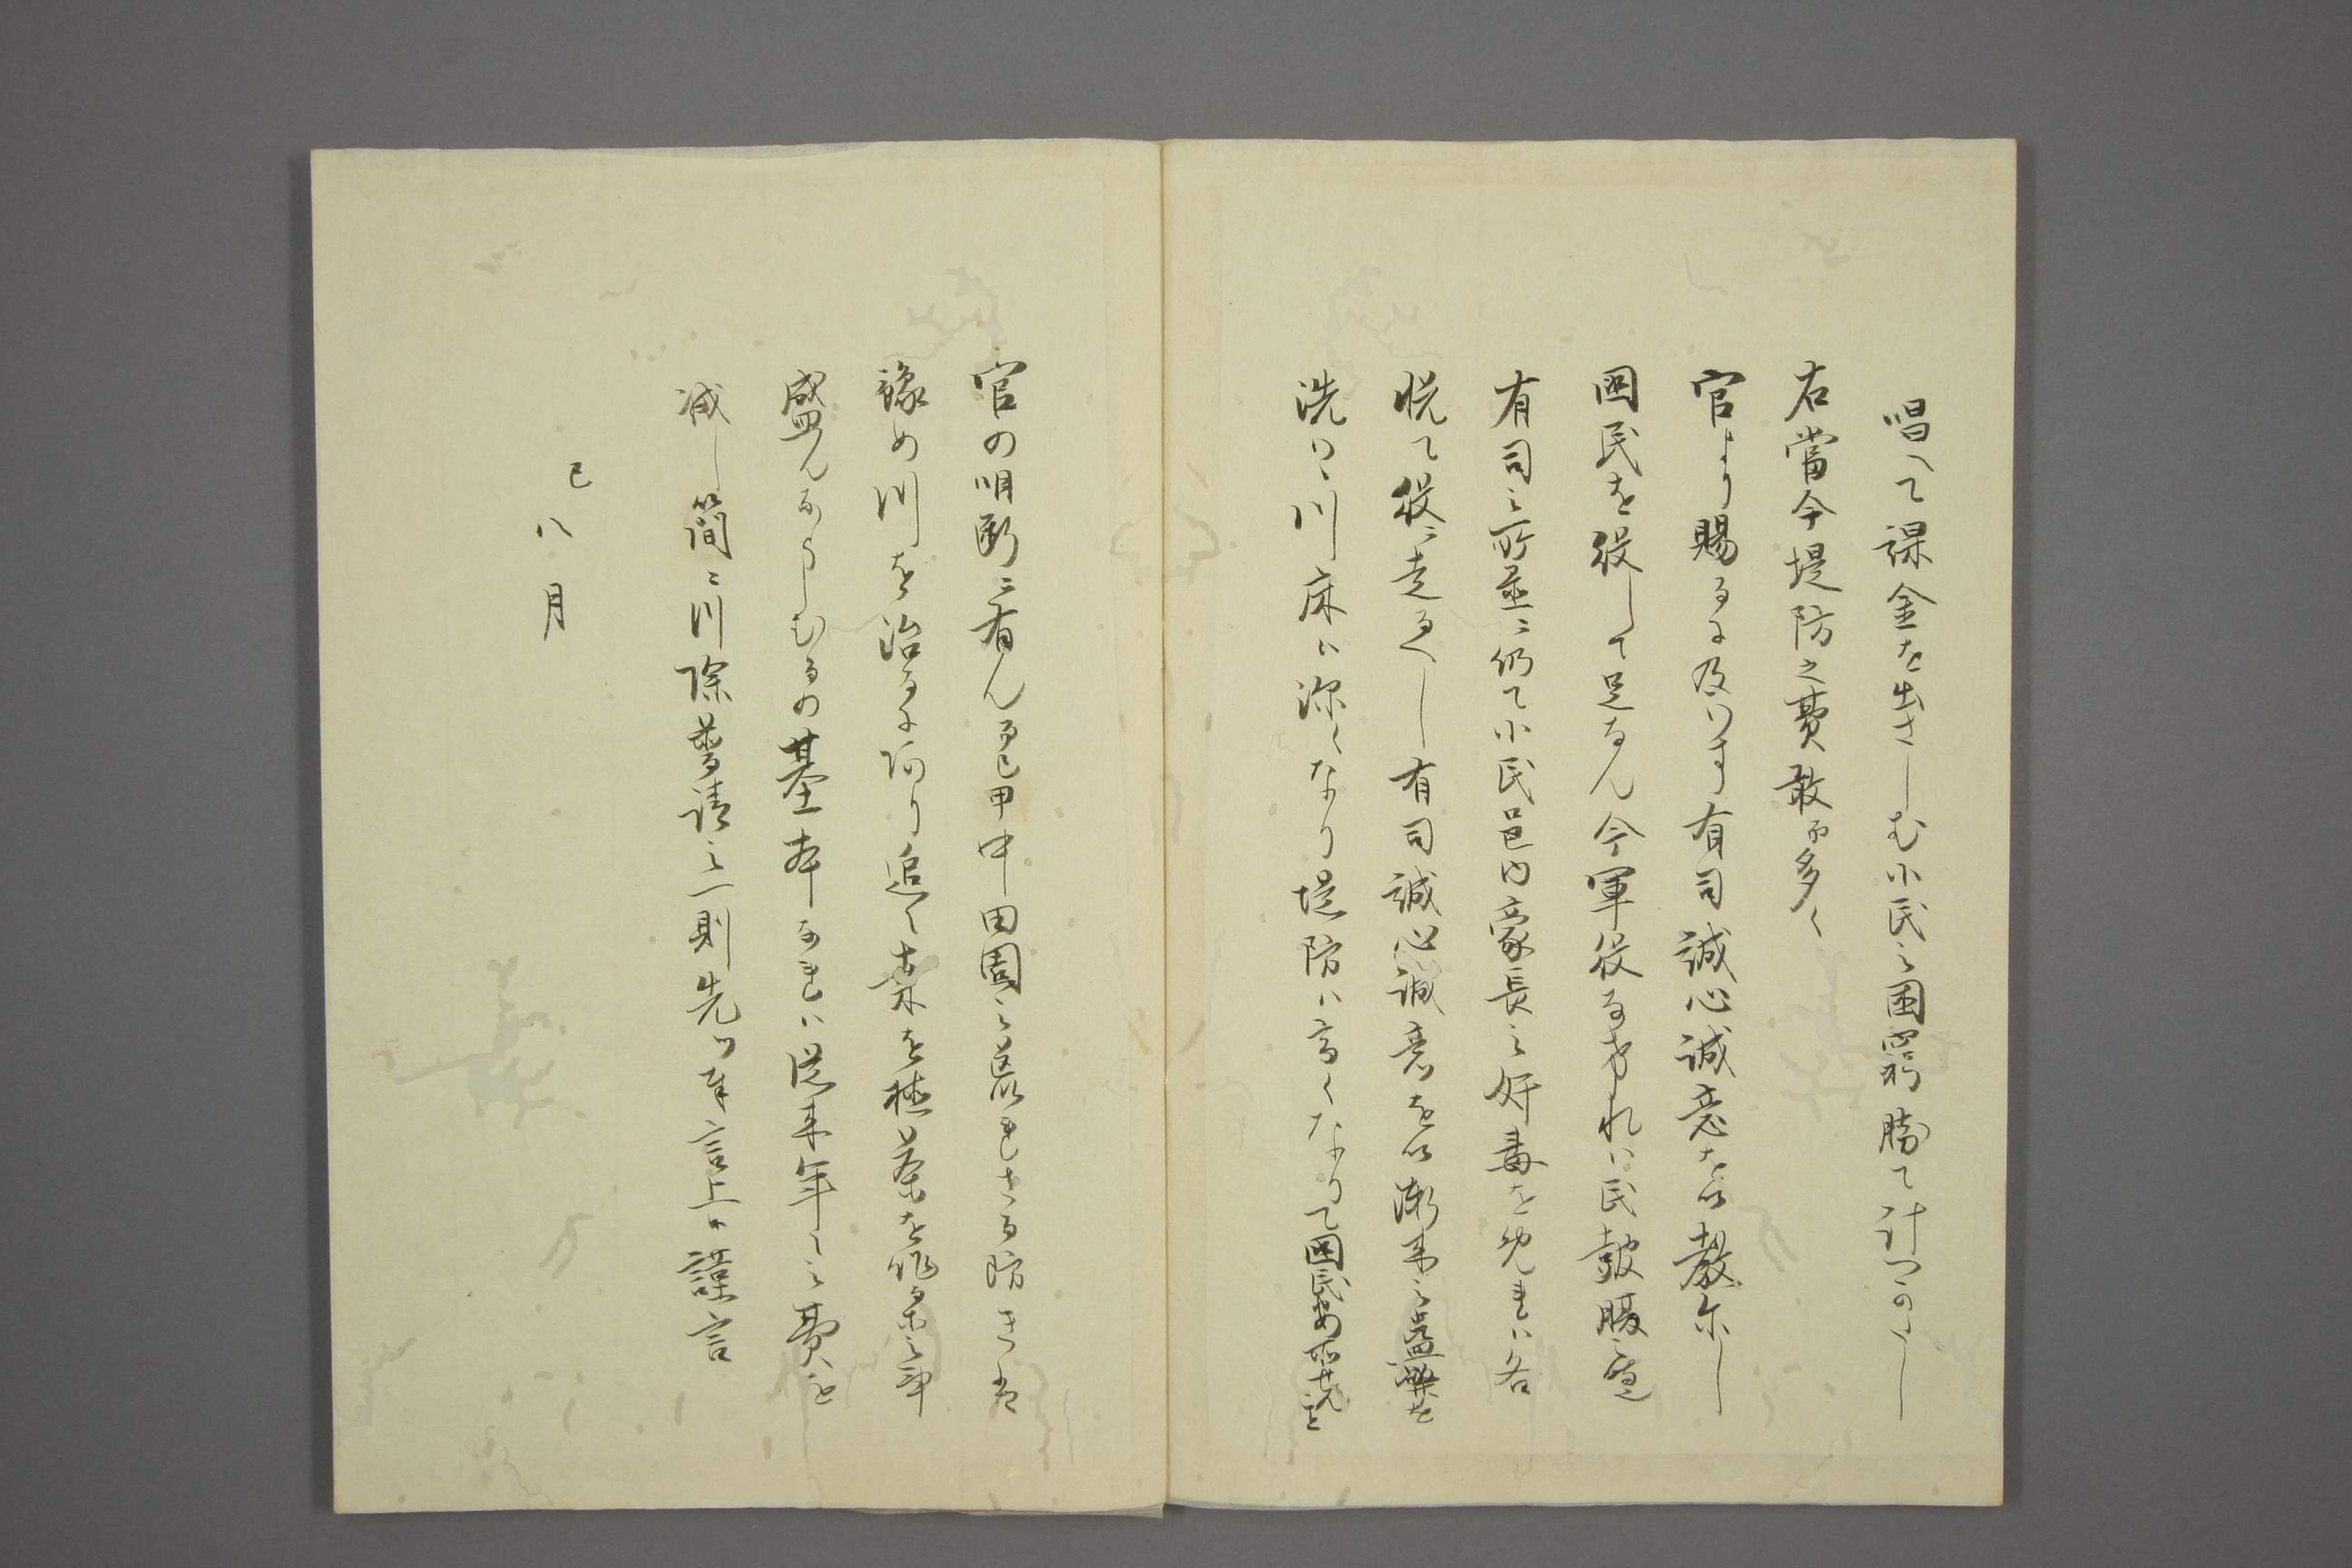 唱へて課金を出さしむ小民之困窮勝て計つへからし
右當今堤防之費敢而多く
官より賜るに及ハす有司誠心誠意を以教示し
国民を役して足なん今軍役なけれハ民鼓腹之道
有司之所置ニ仍て小民邑内豪長之奸毒を免れハ各
悦て役ニ走るへし有司誠心誠意を以漸来之蠧弊を
洗ハヽ川床ハ深くなり堤防ハ高くなりて国民安
官の明断ニ有ん而已甲中田園之荒れさる防き
豫め川を治るに阿り追々桑を植茶を作る
盛んならしむるの基本なれハ従来年々之費を
減し簡ニ川除普請之一則先ツ奉言上候謹言
巳
八月